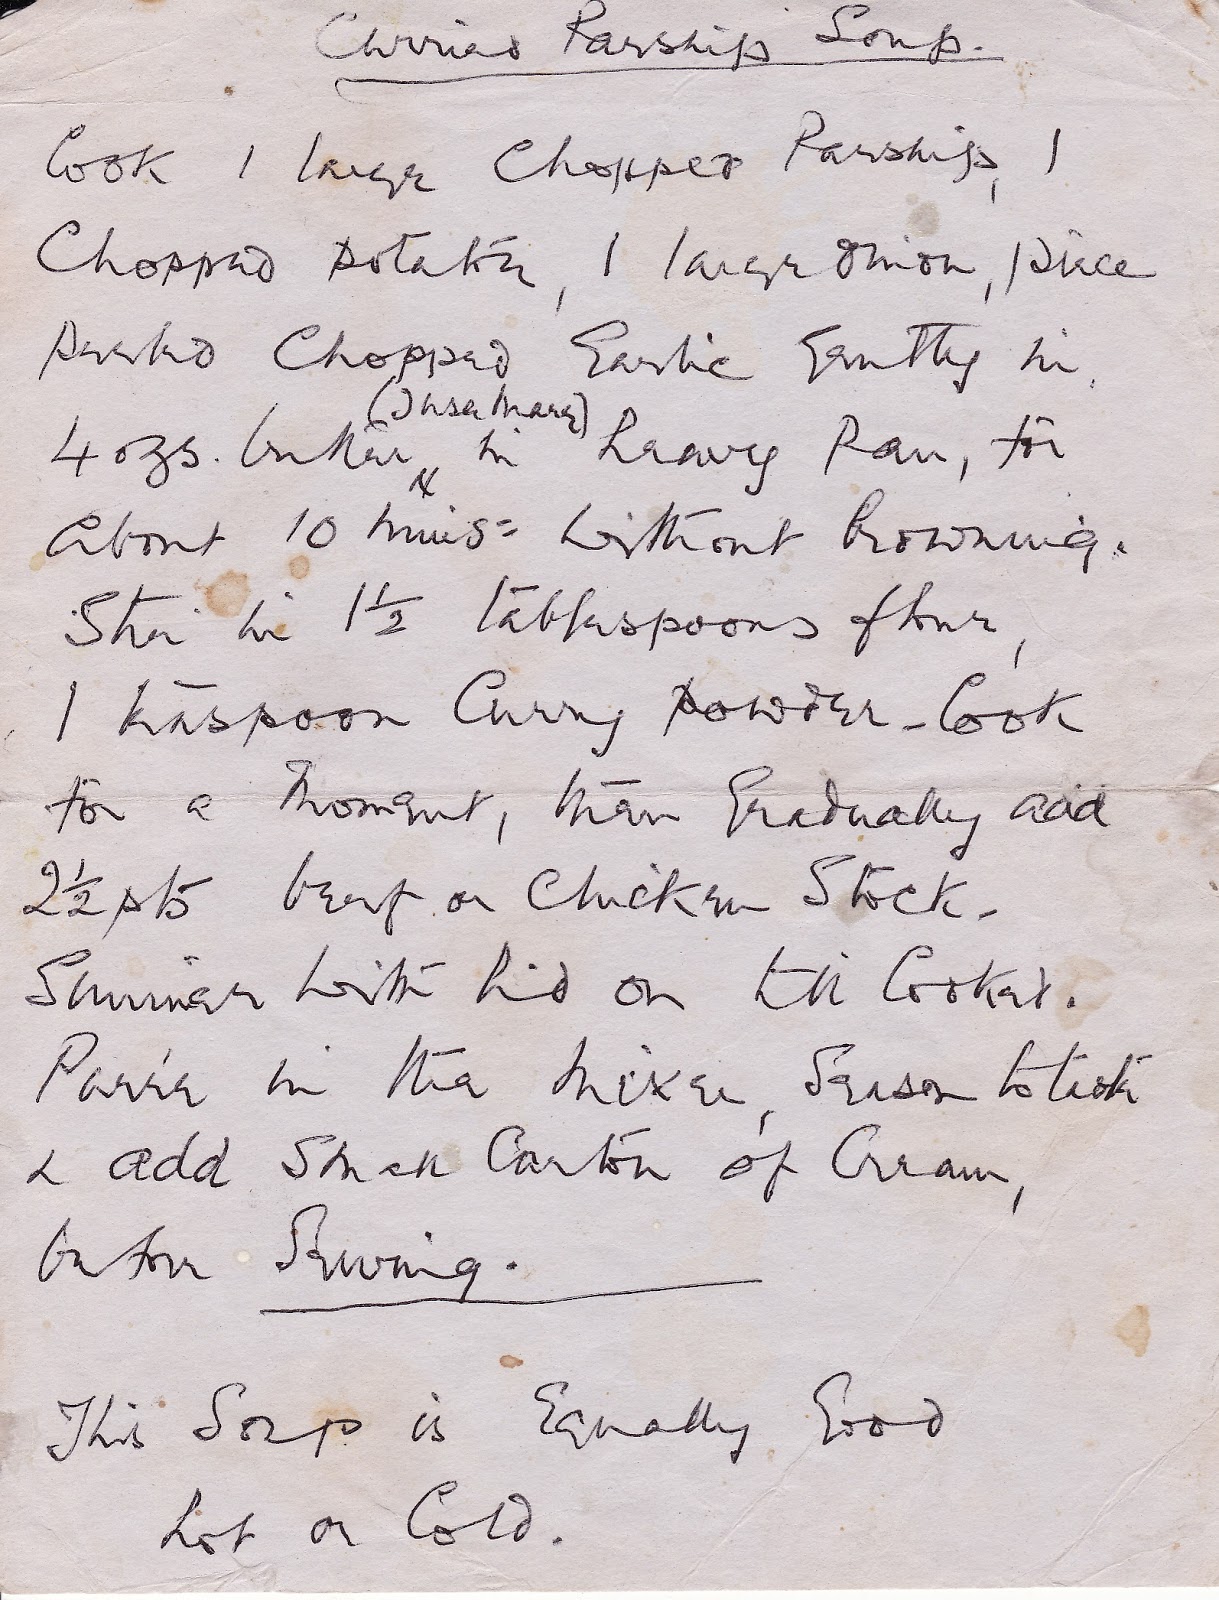 Curried Parsnip Soup.
Cook 1 large Chopped Parsnip, 1
Chopped potatoe, 1 large onion, piece
peeled Chopped Garlic Gently in
(I use marg)
4 ozs. butter in heavy Pan, for
about 10 mins= without browning.
Stir in 1½ tablespoons flour,
1 teaspoon Curry powder - Cook
for a moment, then Gradually add
2½ pts beef or Chicken Stock -
Simmer with lid on till Cooked.
Purée in the mixer, Season to taste
& add Small Carton of Cream,
before Serving.
This Soup is Equally Good
hot or Cold.